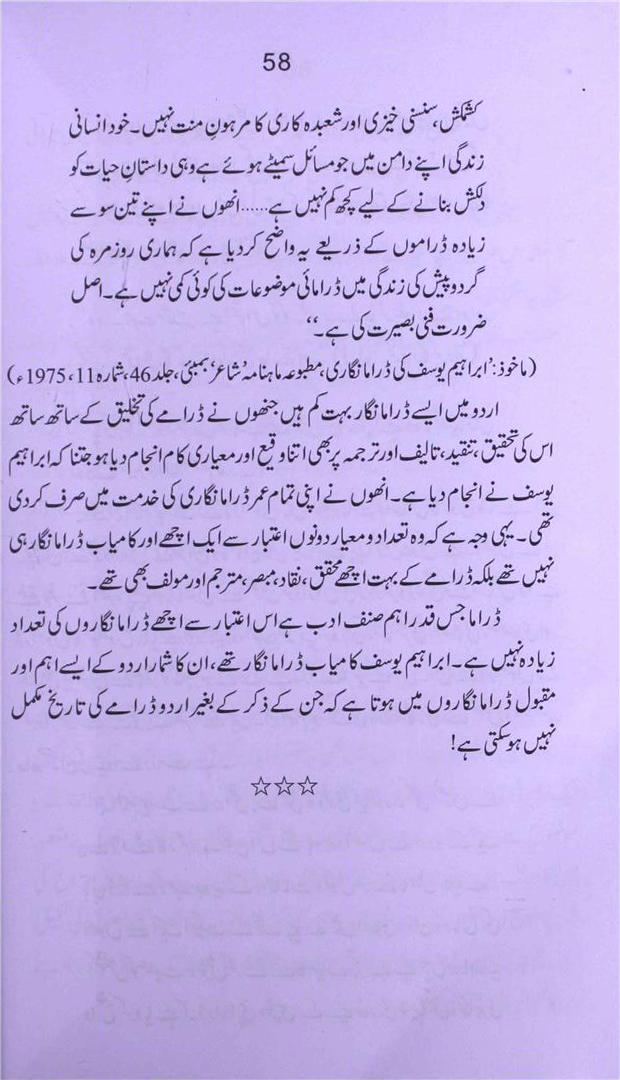 58
کشمکش، سنسنی خیزی اور شعبدہ کاری کا مرہونِ منت نہیں۔ خود انسانی
زندگی اپنے دامن میں جو مسائل سمیٹے ہوئے ہے وہی داستانِ حیات کو
دلکش بنانے کے لیے کچھ کم نہیں ہے......انھوں نے اپنے تین سو سے
زیادہ ڈراموں کے ذریعے یہ واضح کردیا ہے کہ ہماری روزمرہ کی
گردوپیش کی زندگی میں ڈرامائی موضوعات کی کوئی کمی نہیں ہے۔ اصل
ضرورت فنی بصیرت کی ہے۔‘‘
(ماخوذ: ’ابراہیم یوسف کی ڈراما نگاری، مطبوعہ ماہنامہ ’شاعر‘ بمبئی، جلد 46، شمارہ 11، 1975ء)
اردو میں ایسے ڈراما نگار بہت کم ہیں جنھوں نے ڈرامے کی تخلیق کے ساتھ ساتھ
اس کی تحقیق، تنقید، تالیف اور ترجمہ پر بھی اتنا وقیع اور معیاری کام انجام دیا ہو جتنا کہ ابراہیم
یوسف نے انجام دیا ہے۔ انھوں نے اپنی تمام عمر ڈراما نگاری کی خدمت میں صرف کردی
تھی۔ یہی وجہ ہے کہ وہ تعداد و معیار دونوں اعتبار سے ایک اچھے اور کامیاب ڈراما نگار ہی
نہیں تھے بلکہ ڈرامے کے بہت اچھے محقق، نقاد، مبصر، مترجم اور مولف بھی تھے۔
ڈراما جس قدر اہم صنف ادب ہے اس اعتبار سے اچھے ڈراما نگاروں کی تعداد
زیادہ نہیں ہے۔ ابراہیم یوسف کامیاب ڈراما نگار تھے، ان کا شمار اردو کے ایسے اہم اور
مقبول ڈراما نگاروں میں ہوتا ہے کہ جن کے ذکر کے بغیر اردو ڈرامے کی تاریخ مکمل
نہیں ہوسکتی ہے!
☆☆☆